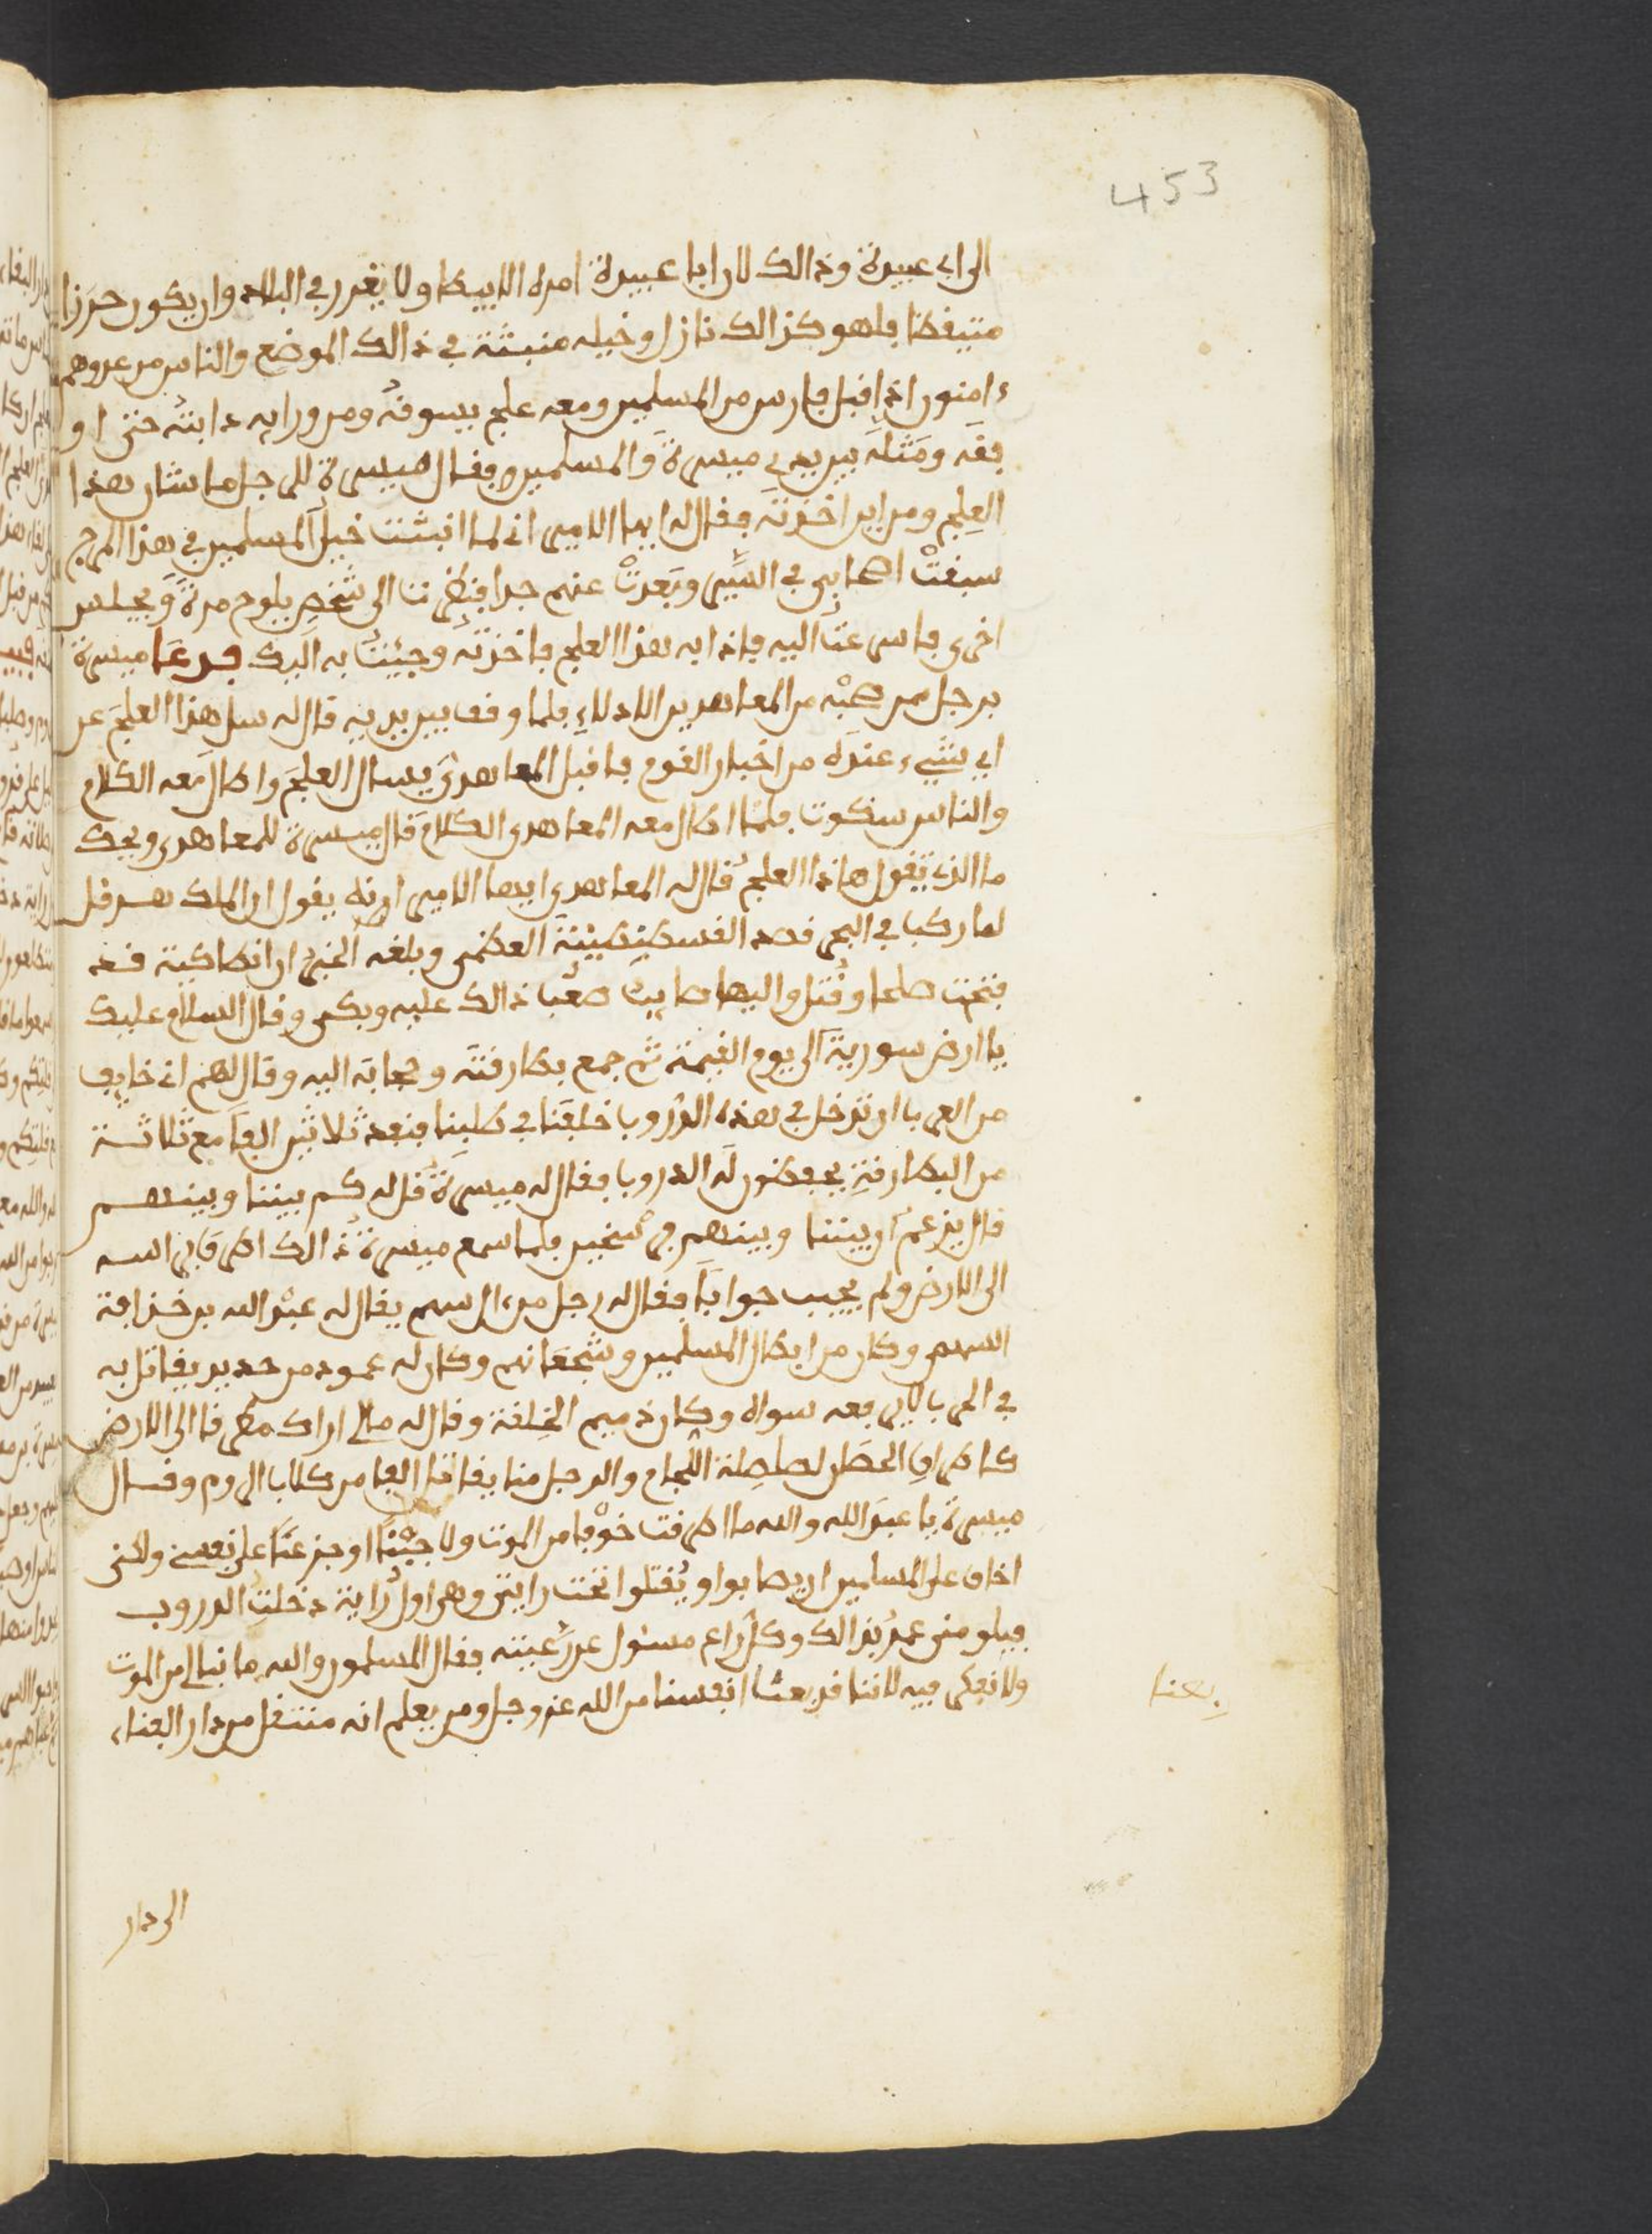 453
الى ابي عبيدة وذالك لان ابا عبيدة امره الا يبطا ولا يغرر في البلاد وان يكون حذرا
متيقظا فلهو كذالك نازل وخيله منبثة في ذالك الموضع والناس من عدوهم
ءامنون اذ اقبل فارس من المسلمين ومعه علج يسوقه ومن ورايه دابته حتى او
قفه ومثله بين يدي ميسرة والمسلمين فقال ميسرة للرجل ما شان هذا
العلج ومن اين اخذته فقال له ايها الامير اني لما انبثت خيل المسلمين في هذا المرج
سبقت اصحابي في السير وبعدت عنهم جدا فنظرت الى شخص يلوح مرة ويجلس
اخرى فاسرعت اليه فاذا به هذا العلج فاخذته وجيئت به اليك فدعا ميسرة
برجل من صحبه من المعاهدين الادلاء فلما وقف بين يديه قال له سل هذا العلج عن
اي شيء عنده من اخبار القوم فاقبل المعاهدي يسال العلج واطال معه الكلام
والناس سكوت فلما اطال معه المعاهدي الكلام قال ميسرة للمعاهدي ويحك
ما الذي يقول هاذا العلج قال له المعاهدي ايها الامير انه يقول ان الملك هرقل
لما ركب في البحر قصد القسطنطينية العظمى وبلغه الخبر ان انطاكية قد
فتحت صلحا وقتل واليها صعب ذالك عليه وبكى وقال السلام عليك
يا ارض سورية الى يوم القيمة ثم جمع بطارقته وحجابه اليه وقال لهم اني خايف
من العرب ان تدخل في هذه الدروب خلفنا في طلبنا فنفذ ثلاثين الفا مع ثلاثة
من البطارقة يحفظون له الدروب فقال له ميسرة قل له كم بيننا وبينهم
قال يزعم ان بيننا وبينهم فرسخين فلما سمع ميسرة ذالك اطرق براسه
الى الارض ولم يجب جوابا فقال له رجل من ال سهم يقال له عبد الله بن حذافة
السهمي وكان من ابطال المسلمين وشجعانهم وكان له عمود من حديد يقاتل به
في الحرب لا يرفعه سواه وكان ذميم الخلقة وقال له مالي اراك مطرقا الى الارض
كاطراق الحصان لصلصلة اللجام والرجل منا يقاتل الفا من كلاب الروم وقال
ميسرة يا عبد الله والله ما اطرقت خوفا من الموت ولا جبنا او جزعا على نفسي ولكني
اخاف على المسلمين ان يصابوا او يقتلوا تحت رايتي وهي اول راية دخلت الدروب
فيلومني عمر بذالك وكل راع مسئول عن رعيته فقال المسلمون والله ما نبالي من الموت
ولا نفكر فيه لاننا قد بعنا انفسنا من الله عز وجل ومن يعلم انه منتقل من دار الفناء
بعنا
الى دار